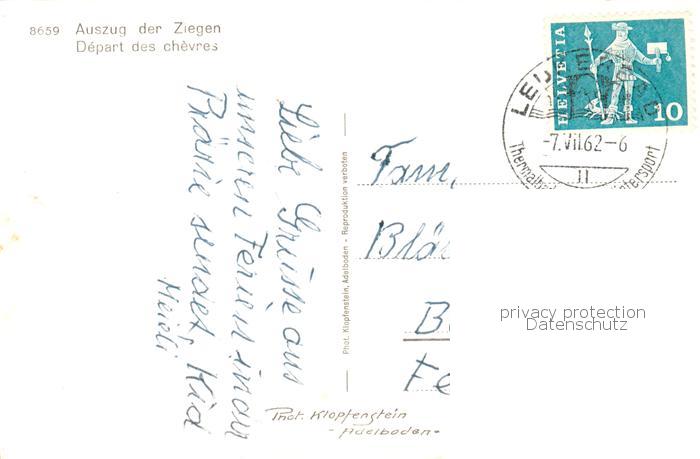 8659 Auszug der Ziegen
Départ des chèvres
HELVETIA
10
LEU
-7.VII.62-6
Thermalba
ntersport
II
Liebe Grüsse aus
unseren Ferien in der
sendet
Heidi
Phot. Klopfenstein, Adelboden - Reproduktion verboten
Fam.
Blä
B
Fe
privacy protection
Datenschutz
Phot. Klopfenstein
- Adelboden -